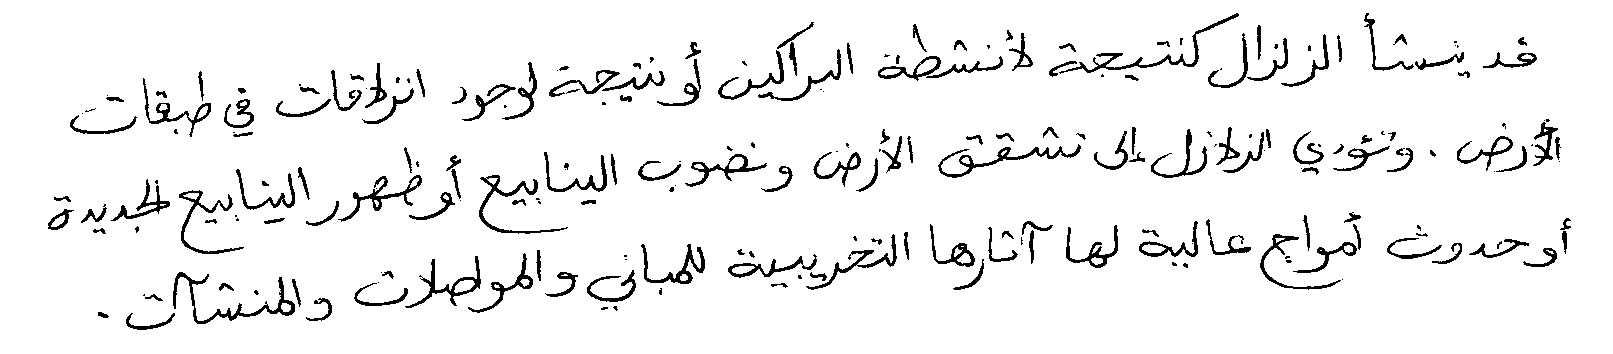 قد ينشأ الزلزال كنتيجة لأنشطة البراكين أو نتيجة لوجود انزلاقات في طبقات
الأرض . وتؤدي الزلازل إلى تشقق الأرض ونضوب الينابيع أو ظهور الينابيع الجديدة
أو حدوث أمواج عالية لها آثارها التخريبية للمباني والمواصلات والمنشآت .